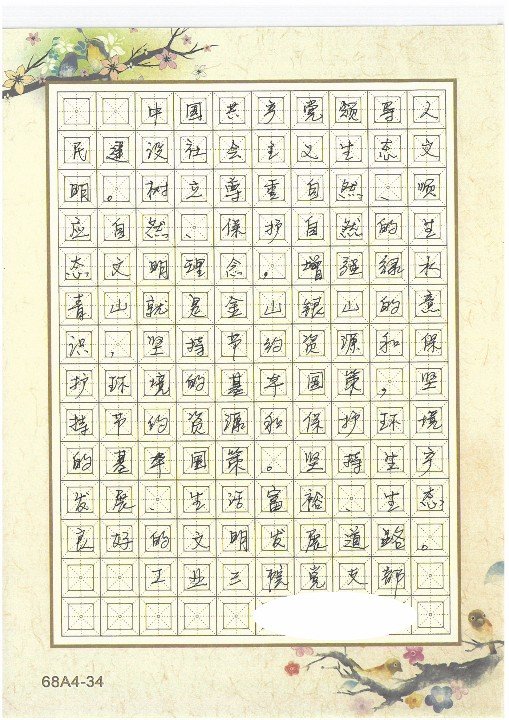 中国共产党领导人
民建设社会主义生态文
明。树立尊重自然、顺
应自然、保护自然的生
态文明理念。增强绿水
青山就是金山银山的意
识，坚持节约资源和保
护环境的基本国策，坚
持节约资源和保护环境
的基本国策。坚持生产
发展、生活富裕、生态
良好的文明发展道路。
工业三院党支部
68A4-34